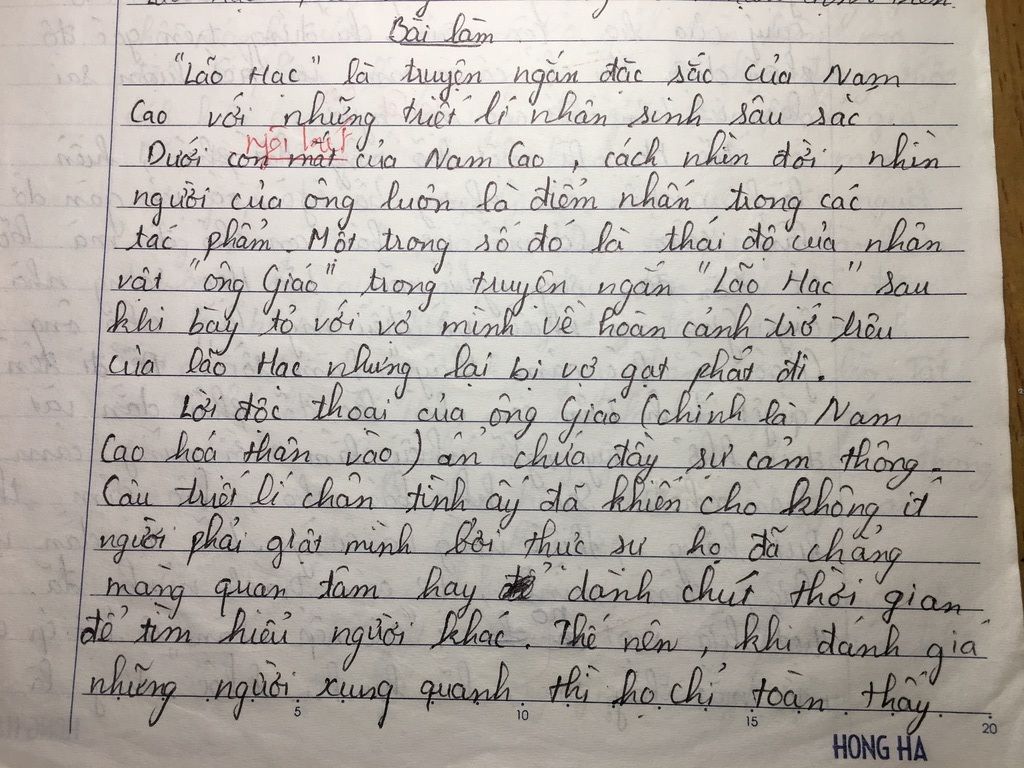 Bài làm
"Lão Hạc" là truyện ngắn đặc sắc của Nam
Cao với những triết lí nhân sinh sâu sắc.
ngòi bút
Dưới con mắt của Nam Cao, cách nhìn đời, nhìn
người của ông luôn là điểm nhấn trong các
tác phẩm. Một trong số đó là thái độ của nhân
vật "ông Giáo" trong truyện ngắn "Lão Hạc" sau
khi bày tỏ với vợ mình về hoàn cảnh trớ trêu
của lão Hạc nhưng lại bị vợ gạt phắt đi.
Lời độc thoại của ông Giáo (chính là Nam
Cao hoá thân vào) ẩn chứa đầy sự cảm thông.
Câu triết lí chân tình ấy đã khiến cho không ít
người phải giật mình bởi thực sự họ đã chẳng
màng quan tâm hay dành chút thời gian
để tìm hiểu người khác. Thế nên, khi đánh giá
những người xung quanh thì họ chỉ toàn thấy
5 10 15 20
HONG HA